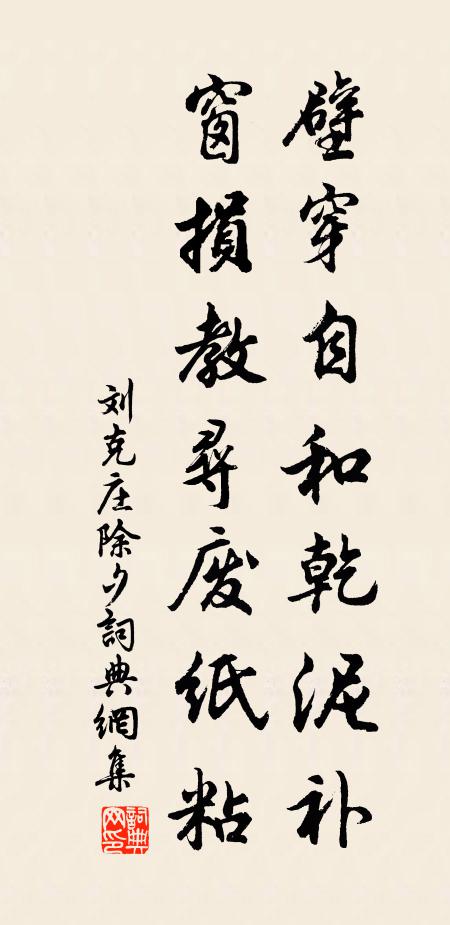 壁穿自和乾泥补
窗損教尋废纸粘
刘克庄除夕詞典網集
詞典网印